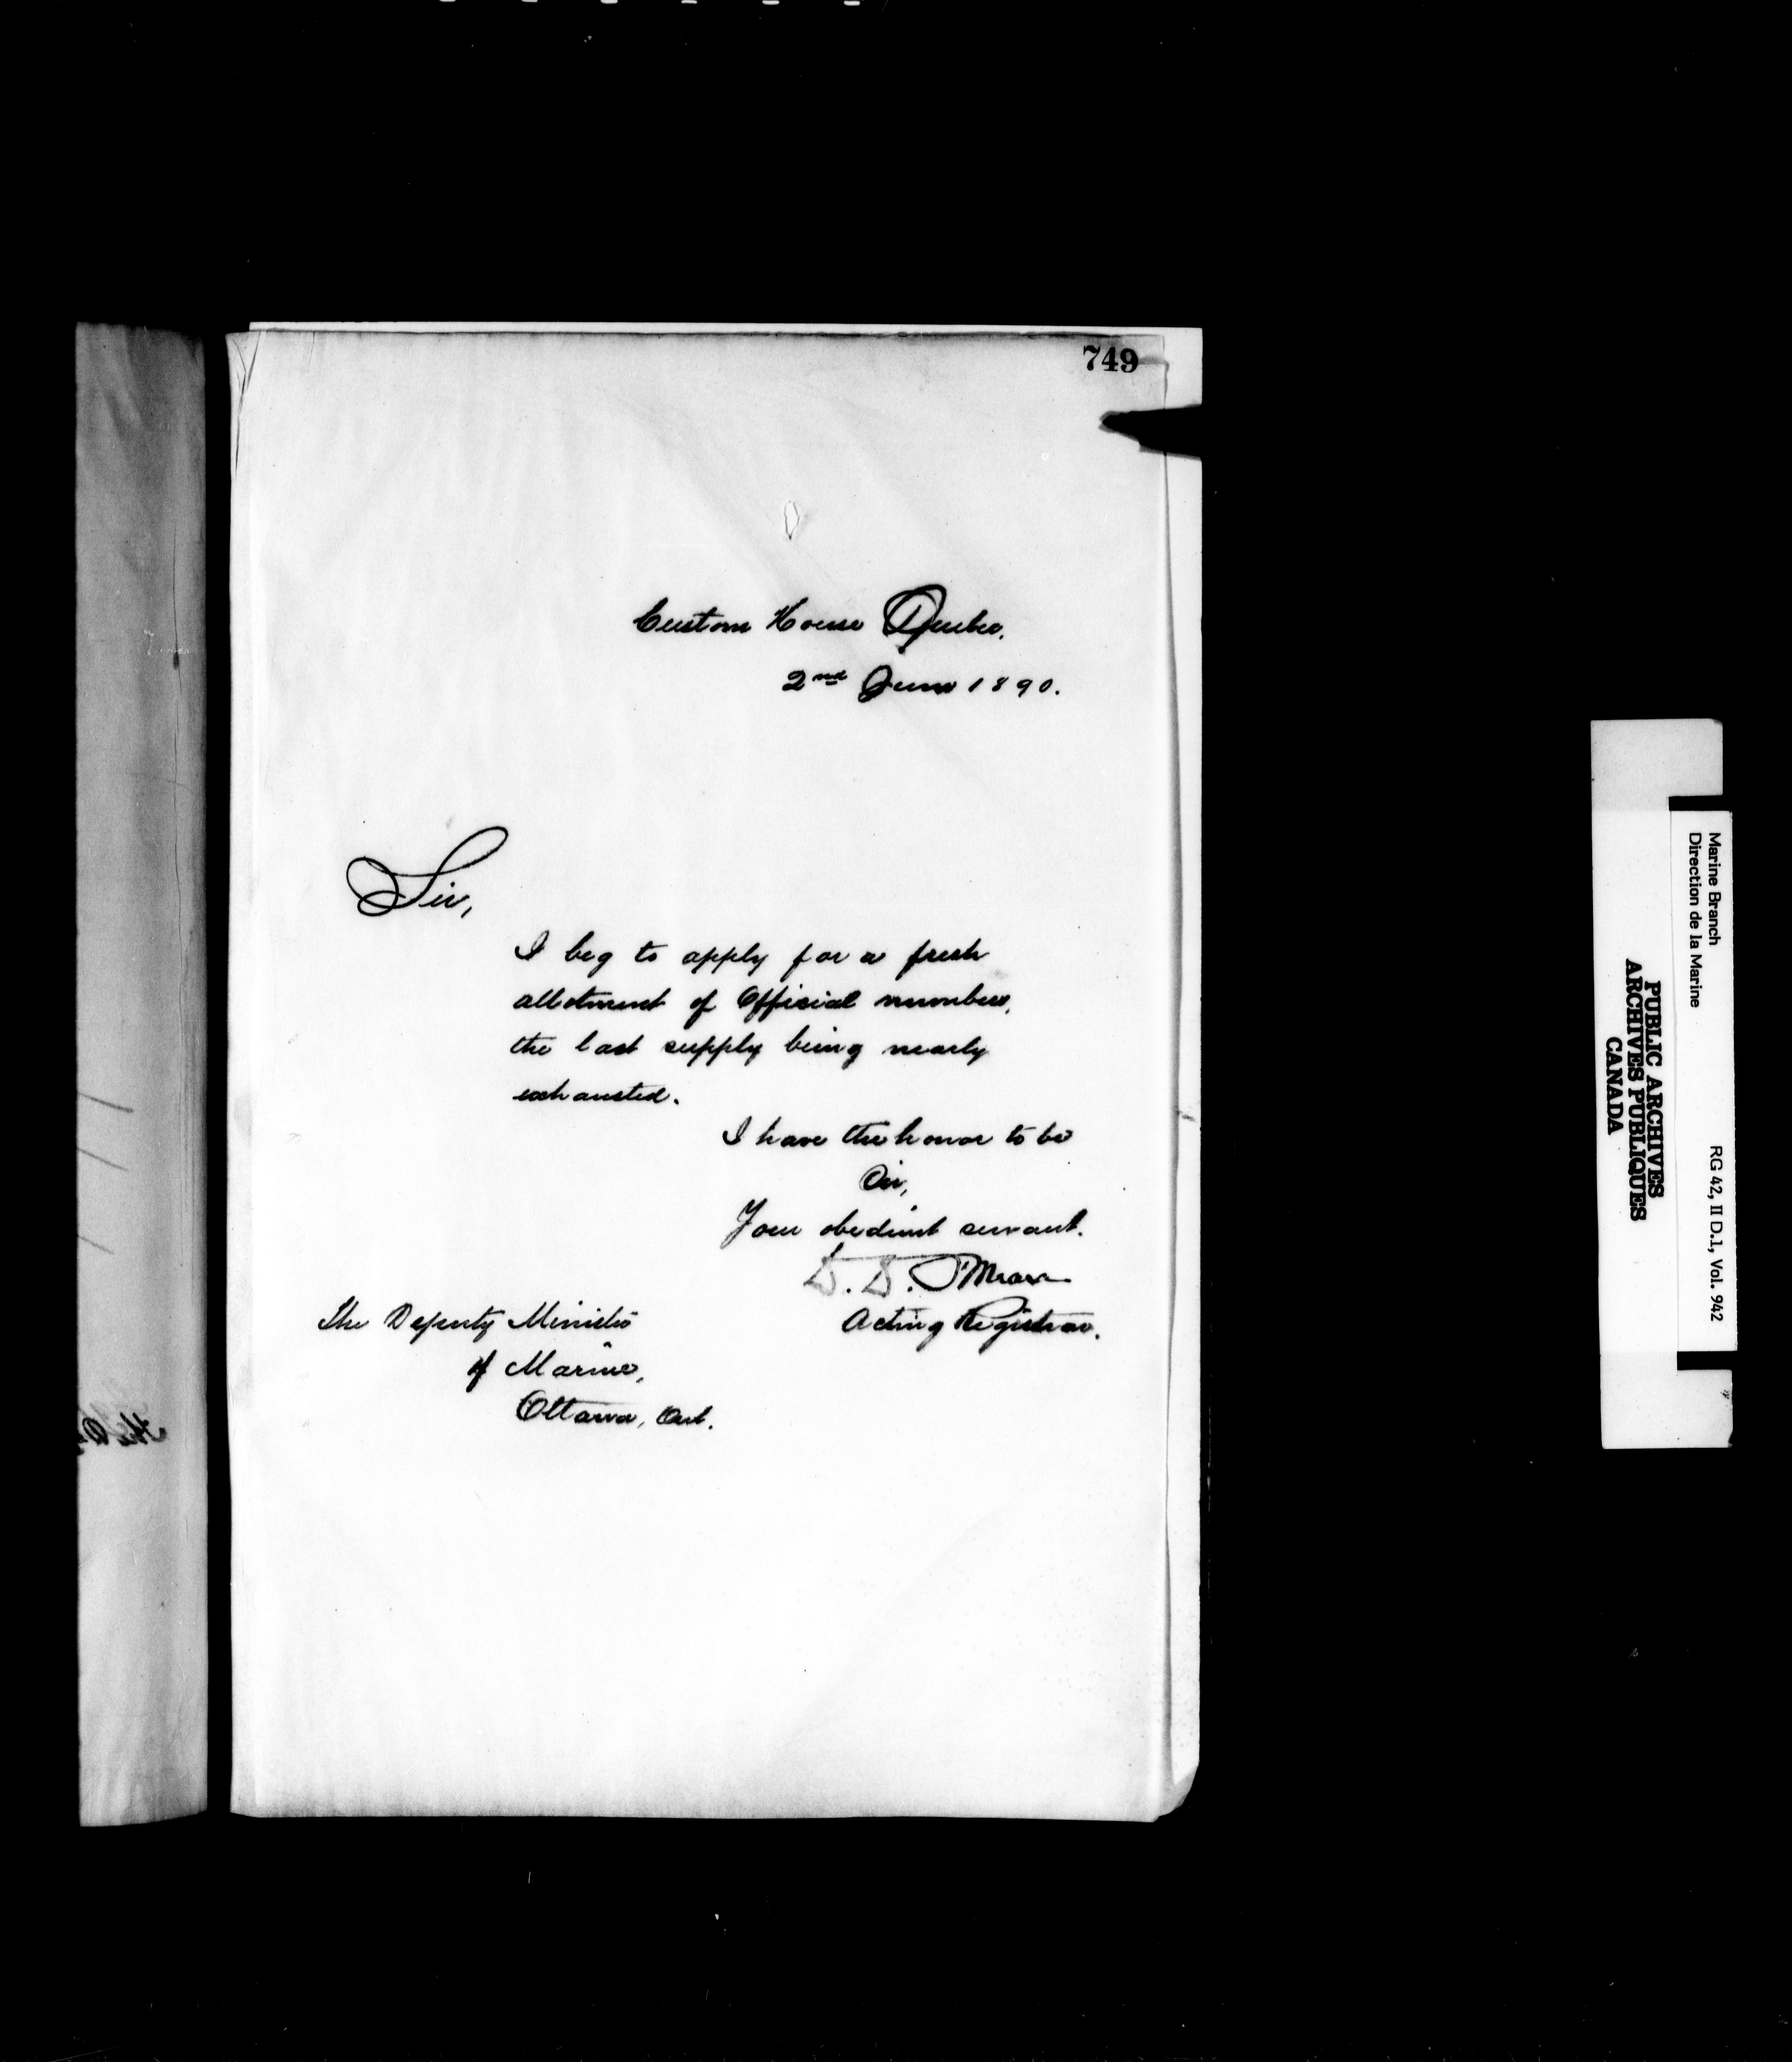 749
Custom House Quebec,
2nd June 1890.
Sir,
I beg to apply for a fresh
allotment of Official numbers,
the last supply being nearly
exhausted.
I have the honor to be
Sir,
Your obedient servant.
D. D. O'Meara
Acting Registrar.
The Deputy Minister
of Marine,
Ottawa, Ont.
Marine Branch
Direction de la Marine
RG 42, II D.1, Vol. 942
PUBLIC ARCHIVES
ARCHIVES PUBLIQUES
CANADA